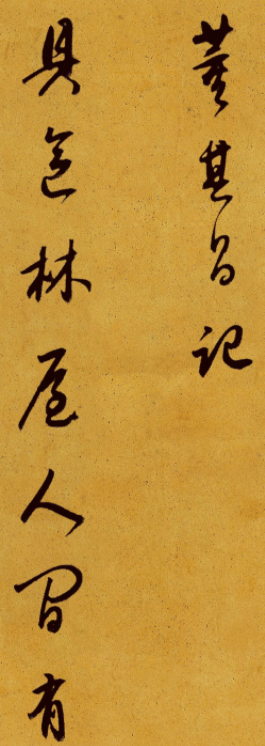 董其昌記
具區林屋人間有